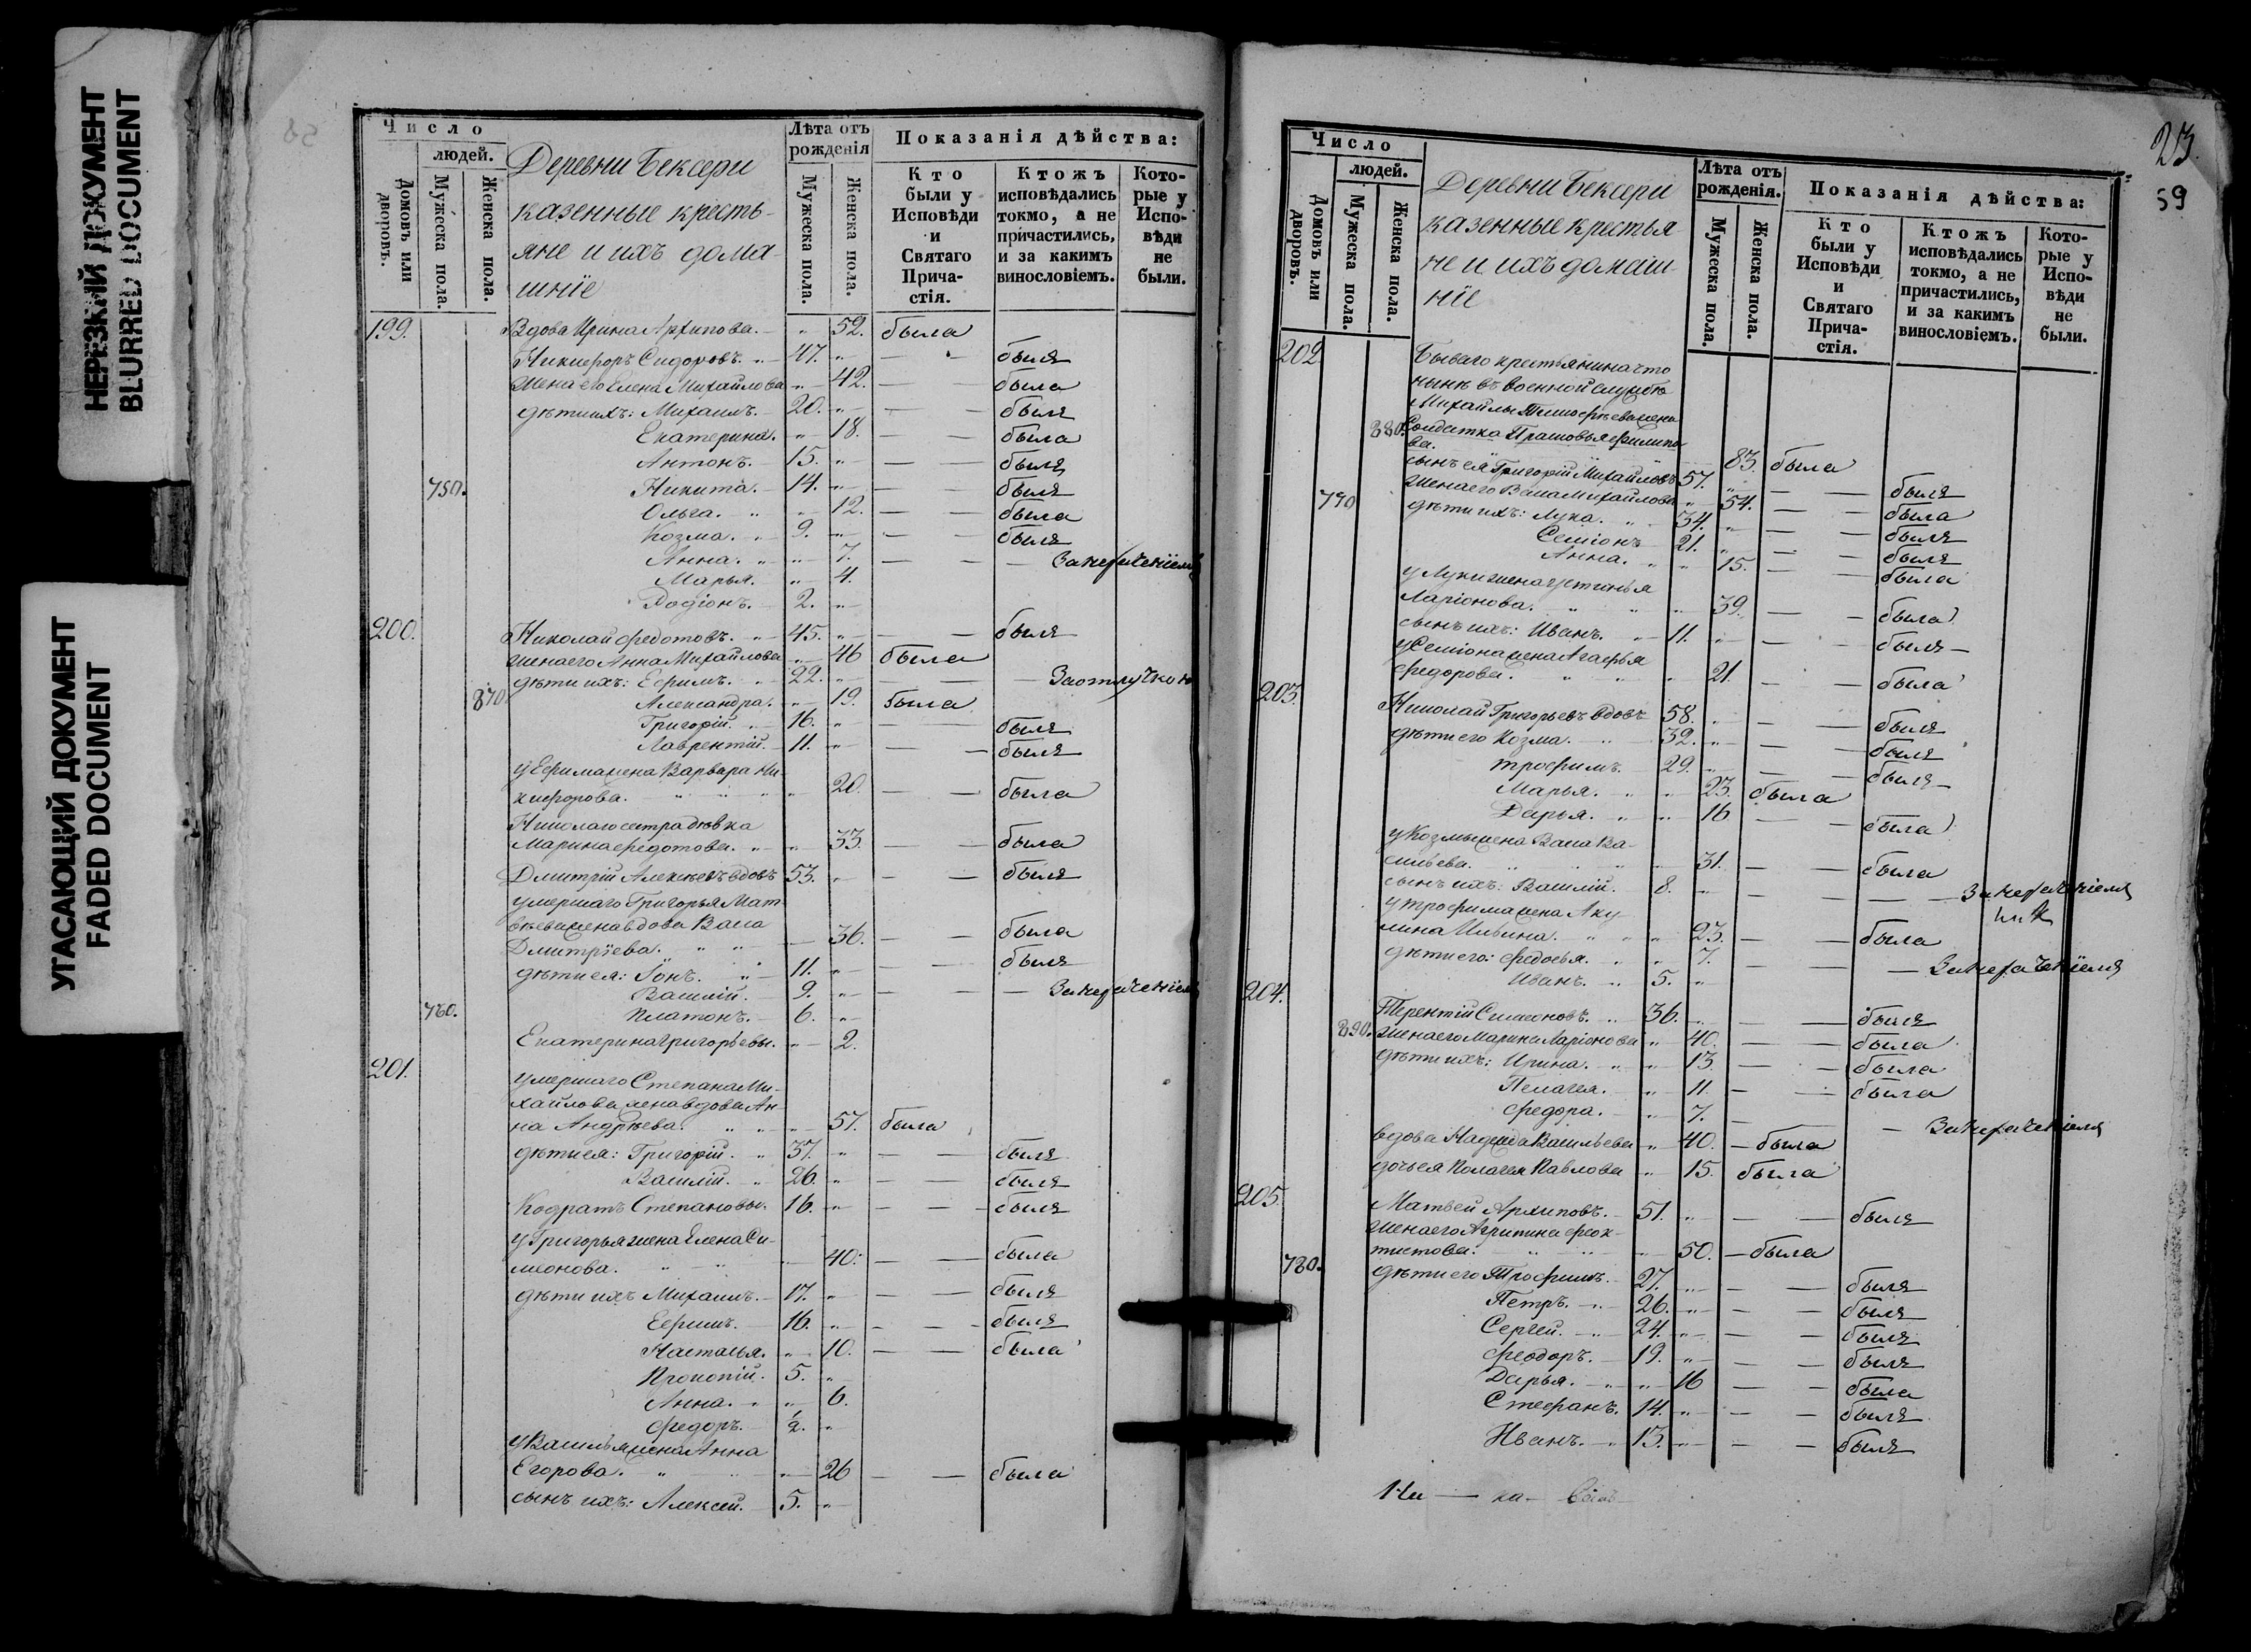 НЕРЕЗКИЙ ДОКУМЕНТ
BLURRED DOCUMENT
УГАСАЮЩИЙ ДОКУМЕНТ
FADED DOCUMENT
Число
людей.
Домовъ или дворовъ.
Мужеска пола.
Женска пола.
Деревни Бексери
казенные кресть-
яне и ихъ дома-
шнiе
Лѣта отъ рожденія
Мужеска пола.
Женска пола.
Показанія дѣйства:
Кто были у Исповѣди и Святаго Прича-стія.
Ктожъ исповѣдались токмо, а не причастились, и за какимъ винословіемъ.
Кото-рые у Испо-вѣди не были.
199. Вдова Ирина Архипова. 52. была
Никифоръ Сидоровъ. 47. былъ
жена его Елена Михайлова 42. была
дѣти ихъ: Михаилъ. 20. былъ
Екатерина. 18. была
Антонъ. 15. былъ
750. Никита. 14. былъ
Ольга. 12. была
Козма. 9. былъ
Анна. 7.
Марья. 4.
Родіонъ. 2.
200. Николай Федотовъ. 45. былъ
жена его Анна Михайлова 46 была
дѣти ихъ: Ефимъ. 22. За отлучкою
870 Александра. 19. была
Григорій. 16. былъ
Лаврентій. 11. былъ
у Ефима жена Варвара Ни-
кифорова. 20. была
Николаго сетра дѣвка
Марина Федотова. 33. была
Дмитрій Алексѣевъ вдовъ 53. былъ
умершаго Григорья Мат-
вѣева жена вдова Васа
Дмитріева. 36. была
дѣти ея: Іонъ. 11. былъ
Василій. 9.
760. Платонъ. 6.
Екатерина Григорьевы. 2.
201. умершаго Степана Ми-
хайлова жена вдова Ан-
на Андрѣева. 57. была
дѣти ея: Григорій. 37. былъ
Василій. 26. былъ
Кодратъ Степановы. 16. былъ
у Григорья жена Елена Си-
меонова. 40. была
дѣти ихъ Михаилъ. 17. былъ
Ефимъ. 16. былъ
Наталья. 10. была
Прокопій. 5.
Анна. 6.
Федоръ. ½.
у Василья жена Анна
Егорова. 26 была
сынъ ихъ: Алексей. 5.
23.
59
Число
людей.
Домовъ или дворовъ.
Мужеска пола.
Женска пола.
Деревни Бексери
казенные крестья-
не и ихъ домаш-
нiе
Лѣта отъ рожденія.
Мужеска пола.
Женска пола.
Показанія дѣйства:
Кто были у Исповѣди и Святаго Прича-стія.
Ктожъ исповѣдались токмо, а не причастились, и за какимъ винословіемъ.
Кото-рые у Испо-вѣди не были.
202 Бывшаго крестьянина что
нынѣ въ военной службѣ
Михайлы Тимофѣева жена
880. Солдатка Прасковья Филипо-
ва. 83. была
сынъ ея Григорій Михайловъ 57. былъ
жена его Васа Михайлова 54. была
770 дѣти ихъ: Лука. 34. былъ
Семіонъ 21. былъ
Анна. 15. была
у Луки жена Устинья
Ларіонова. 39. была
сынъ ихъ: Иванъ. 11. былъ
у Семіона жена Агафья
Федорова. 21. была
203. Николай Григорьевъ вдовъ 58. былъ
дѣти его Козма. 32. былъ
Трофимъ. 29. былъ
Марья. 23. была
Дарья. 16 была
у Козмы жена Васа Ва-
сильева. 31. была
сынъ ихъ: Василій. 8.
у Трофима жена Аку-
лина Ильина. 23. была
дѣти его: Федосья. 7.
Иванъ. 5.
204. Терентій Симеоновъ. 36. былъ
890. жена его Марина Ларіонова 40. была
дѣти ихъ: Ирина. 13. была
Пелагея. 11. была
Федора. 7.
вдова Надежда Васильева 40. была
дочь ея Пелагея Павлова 15. была
205. Матвей Архиповъ. 51. былъ
жена его Агрипина Феок-
тистова. 50. была
780. дѣти его Трофимъ. 27. былъ
Петръ. 26. былъ
Сергей. 24. былъ
Феодоръ. 19. былъ
Дарья. 16 была
Стефанъ. 14. былъ
Иванъ. 13. былъ